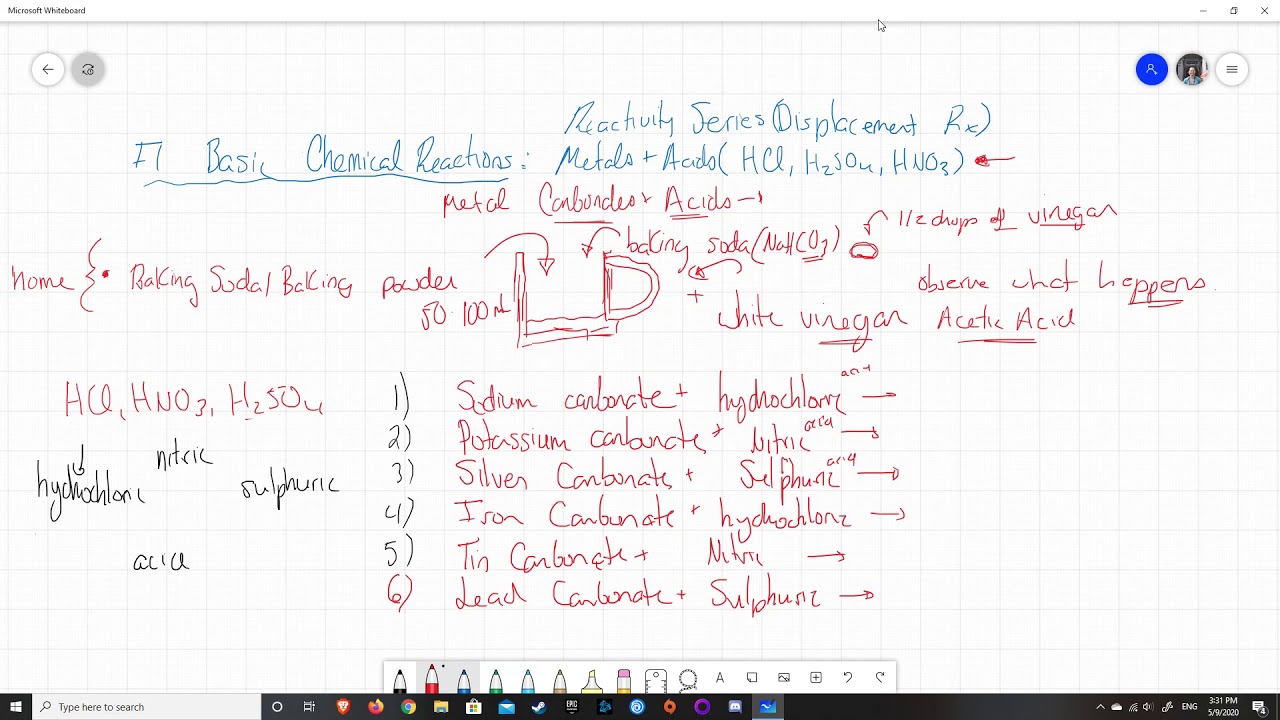 Microsoft Whiteboard
Reactivity Series (Displacement Rx)
Basic Chemical Reactions: Metals + Acids (HCl, H2SO4, HNO3)
Metal Carbonates + Acids →
1/2 drops of vinegar
baking soda (NaHCO3)
home { • Baking Soda/Baking powder
observe what happens.
50-100 ml
+ white vinegar Acetic Acid
HCl, HNO3, H2SO4
hydrochloric nitric sulphuric
acid
1) Sodium carbonate + hydrochloric acid →
2) Potassium carbonate + Nitric acid →
3) Silver Carbonate + Sulphuric acid →
4) Iron Carbonate + hydrochloric →
5) Tin Carbonate + Nitric →
6) Lead Carbonate + Sulphuric →
A
Type here to search
EPIC
ENG
3:31 PM
5/9/2020